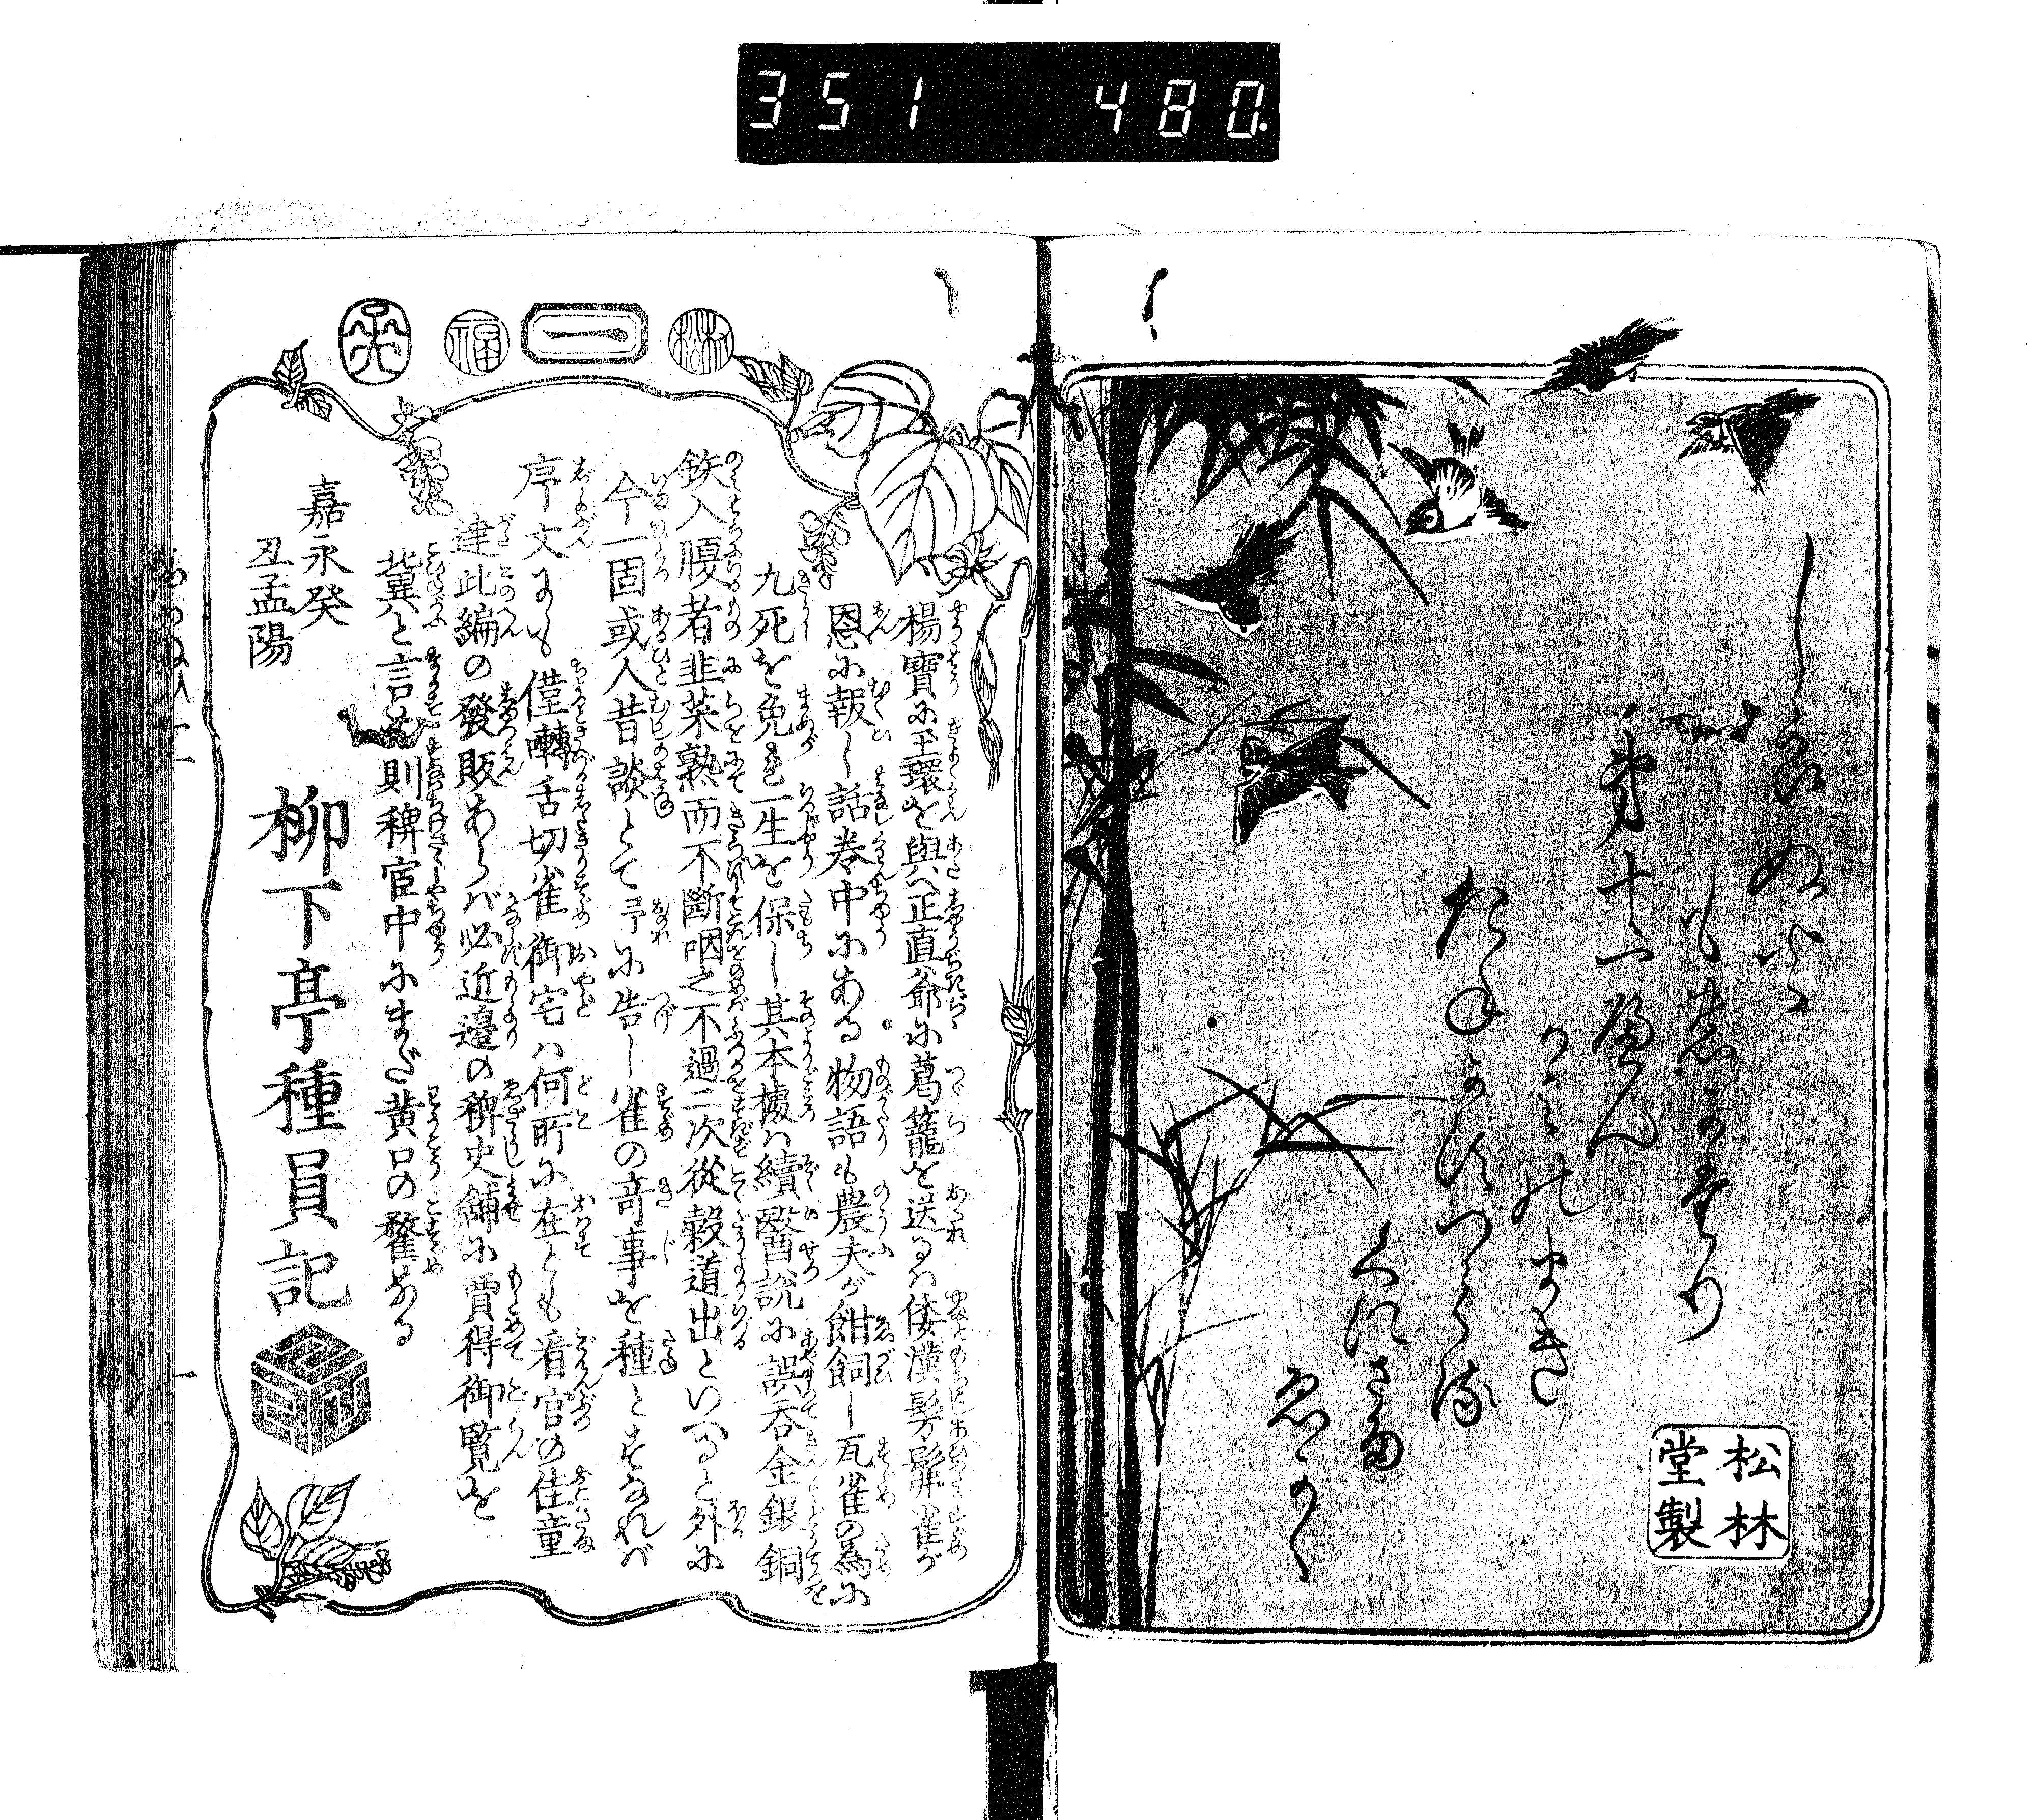 351 480.
しらぬひ
ものかたり
第十一へん
かみのまき
たねかすつくる
くにさだ
ゑかく
松林
堂製
林
一
福
楊寶に玉環を與へ正直爺に葛籠を送るハ倭漢髣髴雀が
恩に報し話巻中にある物語も農夫が餌飼し瓦雀の為に
九死を免れ一生を保し其本據ハ續醫説に誤呑金銀銅
鉄入腹者韭菜熟而不斷咽之不過二次從穀道出といへると外に
今一固或人昔談とて予に告し雀の竒事を種とすなれバ
序文にも僅囀舌切雀御宅ハ何所に在とも看官の佳童
達此編の發販あらバ必近邊の稗史舗に賈得御覧を
冀ハと言則稗官中にまだ黄口の雛ある
嘉永癸
丑孟陽
柳下亭種員記